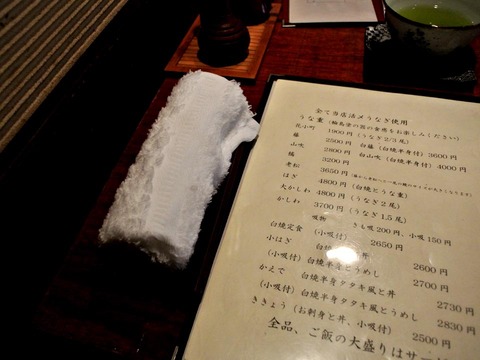 全て当店活〆うなぎ使用
うな重（輪島塗の器の食感をお楽しみください）
花小町 1900円（うなぎ2/3尾）
藤 2500円 白藤（白焼半身付）3600円
山吹 2800円 白山吹（白焼半身付）4000円
橘 3200円
老松 3650円
はぎ 4800円（白焼とうな重）
大かしわ 4800円（うなぎ2尾）
かしわ 3700円（うなぎ1.5尾）
吸物 きも吸200円、小吸150円
白焼定食（小吸付） 2650円
小はぎ 白焼
（小吸付）白焼半身とうめし 2600円
かえで 白焼半身タタキ風と丼 2700円
（小吸付）白焼半身タタキ風とうめし 2730円
ききょう（お刺身と丼、小吸付） 2830円
2500円
全品、ご飯の大盛りはサ